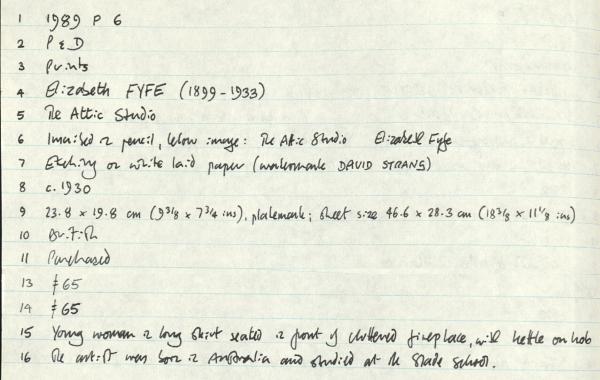 1 1989 P 6
2 P & D
3 Prints
4 Elizabeth FYFE (1899-1933)
5 The Attic Studio
6 Inscribed in pencil, below image: The Attic Studio Elizabeth Fyfe
7 Etching on white laid paper (watermark DAVID STRANG)
8 c. 1930
9 23.8 x 19.8 cm (9 3/8 x 7 3/4 ins), platemark; sheet size 46.6 x 28.3 cm (18 3/8 x 11 1/8 ins)
10 British
11 Purchased
13 £65
14 £65
15 Young woman in long skirt seated in front of cluttered fireplace, with kettle on hob
16 The artist was born in Australia and studied at the Slade School.